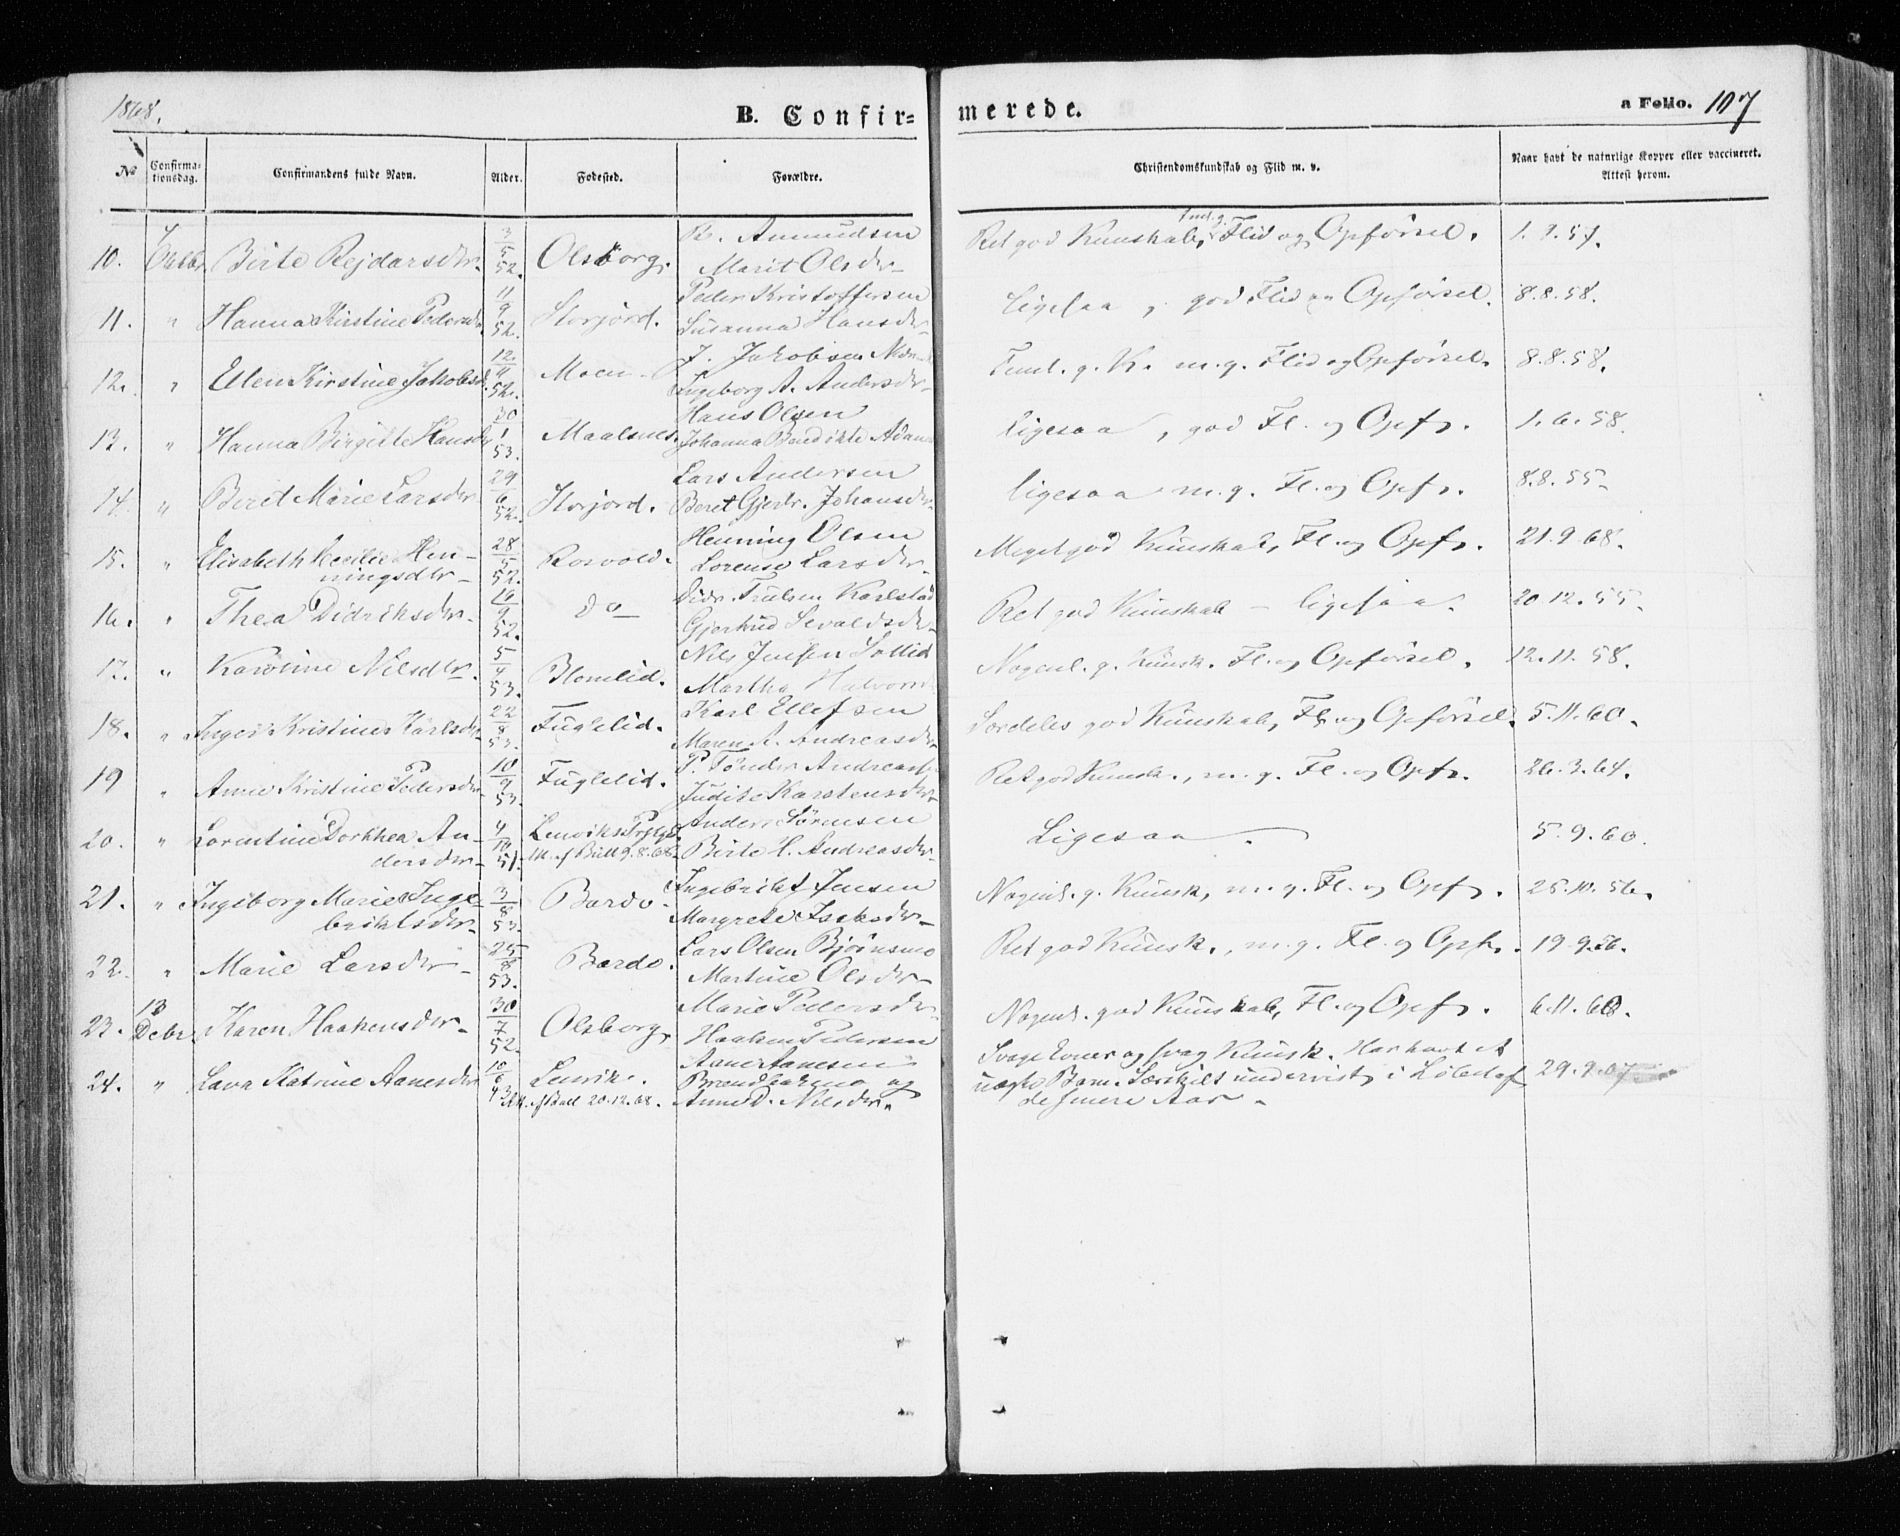 1868.
B. Confir= merede. a Folio. 107
No Confirma-tionsdag. Confirmandens fulde Navn. Alder. Fødested. Forældre. Christendomskundskab og Flid m. v. Naar havt de naturlige Kopper eller vaccineret. Attest herom.
10. Octbr Birte Rejdarsdtr. 3/5 52. Olsborg. R. Amundsen Marit Olsdtr Ret god Kunskab, Flid og Opførsel. 1.9.57.
11. " Hanna Kirstine Pedersdtr 11/9 52. Storjord. Peder Kristoffersen Susanna Hansdtr Ligesaa, god Flid og Opførsel. 8.8.58.
12. " Ellen Kirstine Jakobsd. 12/9 52. Moen J. Jakobsen Ingeborg A. Andersdtr Teml. g. K. m. g. Flid og Opførsel. 8.8.58.
13. " Hanna Birgitte Hansdtr 30/1 53. Maalsnes. Hans Olsen Johanna Bendikte Adams ligesaa, god Fl. og Opf. 1.6.58.
14. " Beret Marie Larsdtr 29/6 52. Storjord. Lars Andersen Beret Gjertr. Johansdtr ligesaa m. g. Fl. og Opf. 8.8.55.
15. " Elisabeth Cecilie Hen-
ningsdtr 28/5 52. Rosvold. Henning Olsen Lorense Larsdtr Meget god Kunskab, Fl. og Opf. 21.9.68.
16. " Thea Didriksdtr. 19/9 52. do Didr. Trulsen Karlstad Gjertrud Sevaldsdtr Ret god Kunskab – ligesaa. 20.12.55.
17. " Karoline Nilsdtr. 5/4 53. Blomlid. Nils Jensen Sollid Martha Halvorsd Nogenl. g. Kunsk. Fl. og Opførsel. 12.11.58.
18. " Inger Kristine Karlsdtr 22/8 53. Fuglelid. Karl Ellefsen Maren A. Andreasdtr Særdeles god Kunskab, Fl. og Opførsel. 5.11.60.
19 " Anne Kristine Pedersdtr 10/9 53. Fuglelid. P. Tønder Andreas Judite Karstensdtr Ret god Kunsk., m. g. Fl. og Opf. 26.3.64.
20. " Lorentine Dorthea An-
dersdtr 4/10 51. Lenviks Prstgd. Utl. af Bull 9.8.68. Anders Sørensen Birte H. Andreasdtr Ligesaa. 5.9.60.
21. " Ingeborg Marie Inge-
briktsdtr 3/8 53. Bardo. Ingebrikt Jensen Margrete Isaksdtr Nogenl. g. Kunsk, m. g. Fl. og Opf. 25.10.56.
22. " Marie Larsdtr 25/8 53. Bardo. Lars Olsen Bjørnsmo Martine Olsdtr Ret god Kunsk., m. g. Fl. og Opf. 19.9.56.
23. 13 Debr. Karen Haakensdtr 30/7 52. Olsborg Marie Pedersdtr Haaken Pedersen Nogenl. god Kunskab, Fl. og Opf. 6.11.60.
24. " Lava Katrine Aanesdtr 10/6 Lenvik. Utl. af Bull 20.12.68. Aane Aanesen og Anne D. Nilsdtr. Svage Evner og svag Kunsk. Har havt et
uægte Barn. Særskilt undervist i Løbet af
de senere Aar. 29.9.67